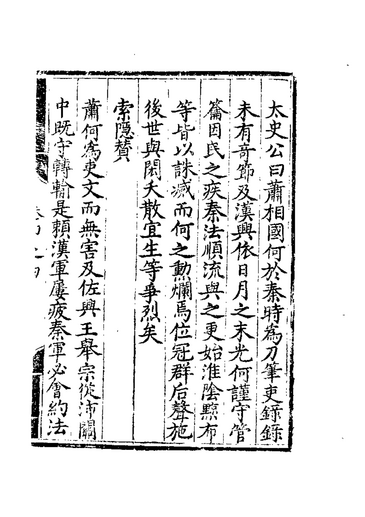 太史公曰蕭相國何於秦時為刀筆吏録録
未有竒節及漢興依日月之末光何謹守管
籥因民之疾秦法順流與之更始淮隂黥布
等皆以誅滅而何之勲爛焉位冠群后聲施
後世與閎夭散宜生等爭烈矣
索隠賛
蕭何為吏文而無害及佐興王舉宗從沛關
中既守轉輸是賴漢軍屢疲秦軍必會約法